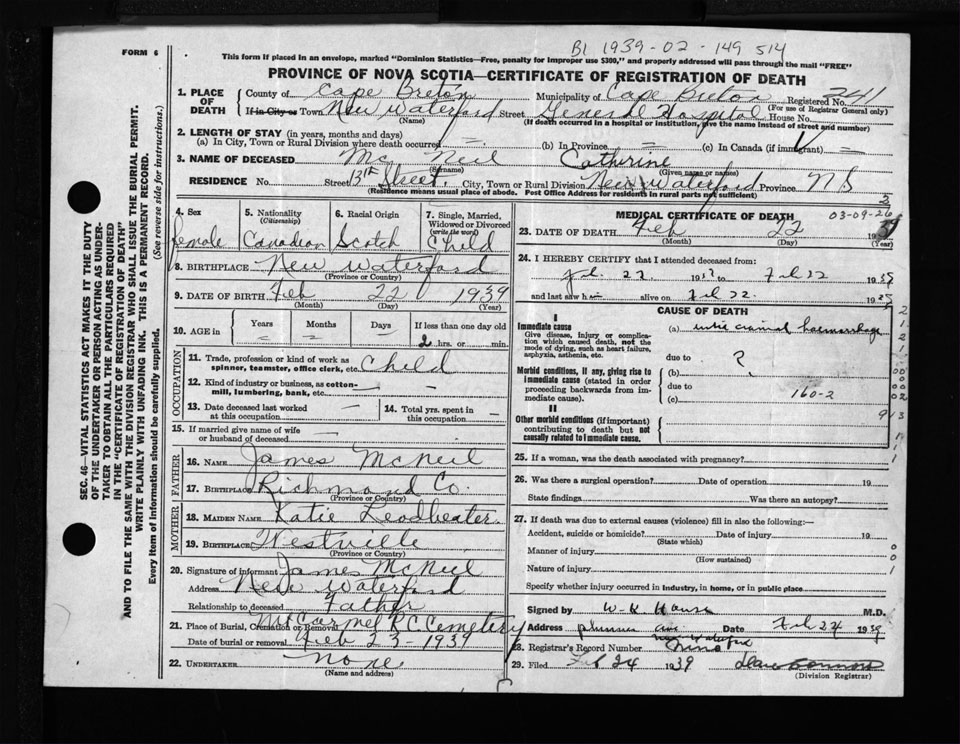 FORM 6
B1 1939-02-149514
This form if placed in an envelope, marked "Dominion Statistics—Free, penalty for improper use $300," and properly addressed will pass through the mail "FREE"
PROVINCE OF NOVA SCOTIA—CERTIFICATE OF REGISTRATION OF DEATH
1. PLACE OF DEATH County of Cape Breton Municipality of Cape Breton Registered No. 241
(For use of Registrar General only)
If in City or Town New Waterford Street General Hospital House No.
(Name) (If death occurred in a hospital or institution, give the name instead of street and number)
2. LENGTH OF STAY (in years, months and days)
(a) In City, Town or Rural Division where death occurred — (b) In Province — (c) In Canada (if immigrant) —
3. NAME OF DECEASED Mc Neil Catherine
(Surname) (Given name or names)
RESIDENCE No. Street 13th Street. City, Town or Rural Division New Waterford Province N S
(Residence means usual place of abode. Post Office Address for residents in rural parts not sufficient)
4. Sex female
5. Nationality (Citizenship) Canadian
6. Racial Origin Scotch
7. Single, Married, Widowed or Divorced (write the word) Child
8. BIRTHPLACE New Waterford
(Province or Country)
9. DATE OF BIRTH Feb 22 1939
(Month) (Day) (Year)
10. AGE in Years — Months — Days — If less than one day old 2 hrs. or min.
OCCUPATION
11. Trade, profession or kind of work as spinner, teamster, office clerk, etc. Child
12. Kind of industry or business, as cotton-mill, lumbering, bank, etc. —
13. Date deceased last worked at this occupation —
14. Total yrs. spent in this occupation —
15. If married give name of wife or husband of deceased —
FATHER
16. NAME James McNeil
17. BIRTHPLACE Richmond Co.
(Province or Country)
MOTHER
18. MAIDEN NAME Katie Leadbeater
19. BIRTHPLACE Westville
(Province or Country)
20. Signature of informant James McNeil
Address New Waterford
Relationship to deceased Father
21. Place of Burial, Cremation or Removal Mt Carmel R C Cemetery
Date of burial or removal Feb 23-1939
22. UNDERTAKER None
(Name and address)
MEDICAL CERTIFICATE OF DEATH
03-09-26
23. DATE OF DEATH Feb 22 1939
(Month) (Day) (Year)
24. I HEREBY CERTIFY that I attended deceased from:
Feb. 22 1939 to Feb 22 1939
and last saw h alive on Feb 22. 1939
CAUSE OF DEATH
I
Immediate cause
Give disease, injury or complication which caused death, not the mode of dying, such as heart failure, asphyxia, asthenia, etc.
(a) haemorrhage
due to
(b) ?
Morbid conditions, if any, giving rise to immediate cause (stated in order proceeding backwards from immediate cause).
due to
(c) 160-2
II
Other morbid conditions (if important) contributing to death but not causally related to immediate cause.
25. If a woman, was the death associated with pregnancy?
26. Was there a surgical operation? Date of operation 19
State findings Was there an autopsy?
27. If death was due to external causes (violence) fill in also the following:—
Accident, suicide or homicide? Date of injury 19
(State which)
Manner of injury
(How sustained)
Nature of injury
Specify whether injury occurred in industry, in home, or in public place
Signed by M.D.
Address Plummer Ave New Waterford Date Feb 24 1939
28. Registrar's Record Number Nine
29. Filed Feb 24 1939
(Division Registrar)
SEC. 46—VITAL STATISTICS ACT MAKES IT THE DUTY
OF THE UNDERTAKER OR PERSON ACTING AS UNDER-
TAKER TO OBTAIN ALL THE PARTICULARS REQUIRED
IN THE "CERTIFICATE OF REGISTRATION OF DEATH"
AND TO FILE THE SAME WITH THE DIVISION REGISTRAR WHO SHALL ISSUE THE BURIAL PERMIT.
WRITE PLAINLY WITH UNFADING INK. THIS IS A PERMANENT RECORD.
Every item of information should be carefully supplied. (See reverse side for instructions.)